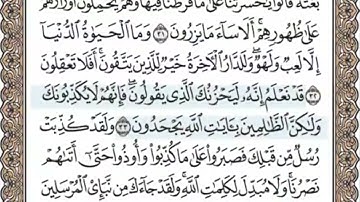 بغتة قالوا يحسرتنا على ما فرطنا فيها وهم يحملون أوزارهم
على ظهورهم ألا ساء ما يزرون ٣١ وما الحيوة الدنيا
إلا لعب ولهو وللدار الآخرة خير للذين يتقون أفلا تعقلون
٣٢ قد نعلم إنه ليحزنك الذي يقولون فإنهم لا يكذبونك
ولكن الظلمين بـايت الله يجحدون ٣٣ ولقد كذبت
رسل من قبلك فصبروا على ما كذبوا وأوذوا حتى أتىهم
نصرنا ولا مبدل لكلمت الله ولقد جاءك من نبإى المرسلين